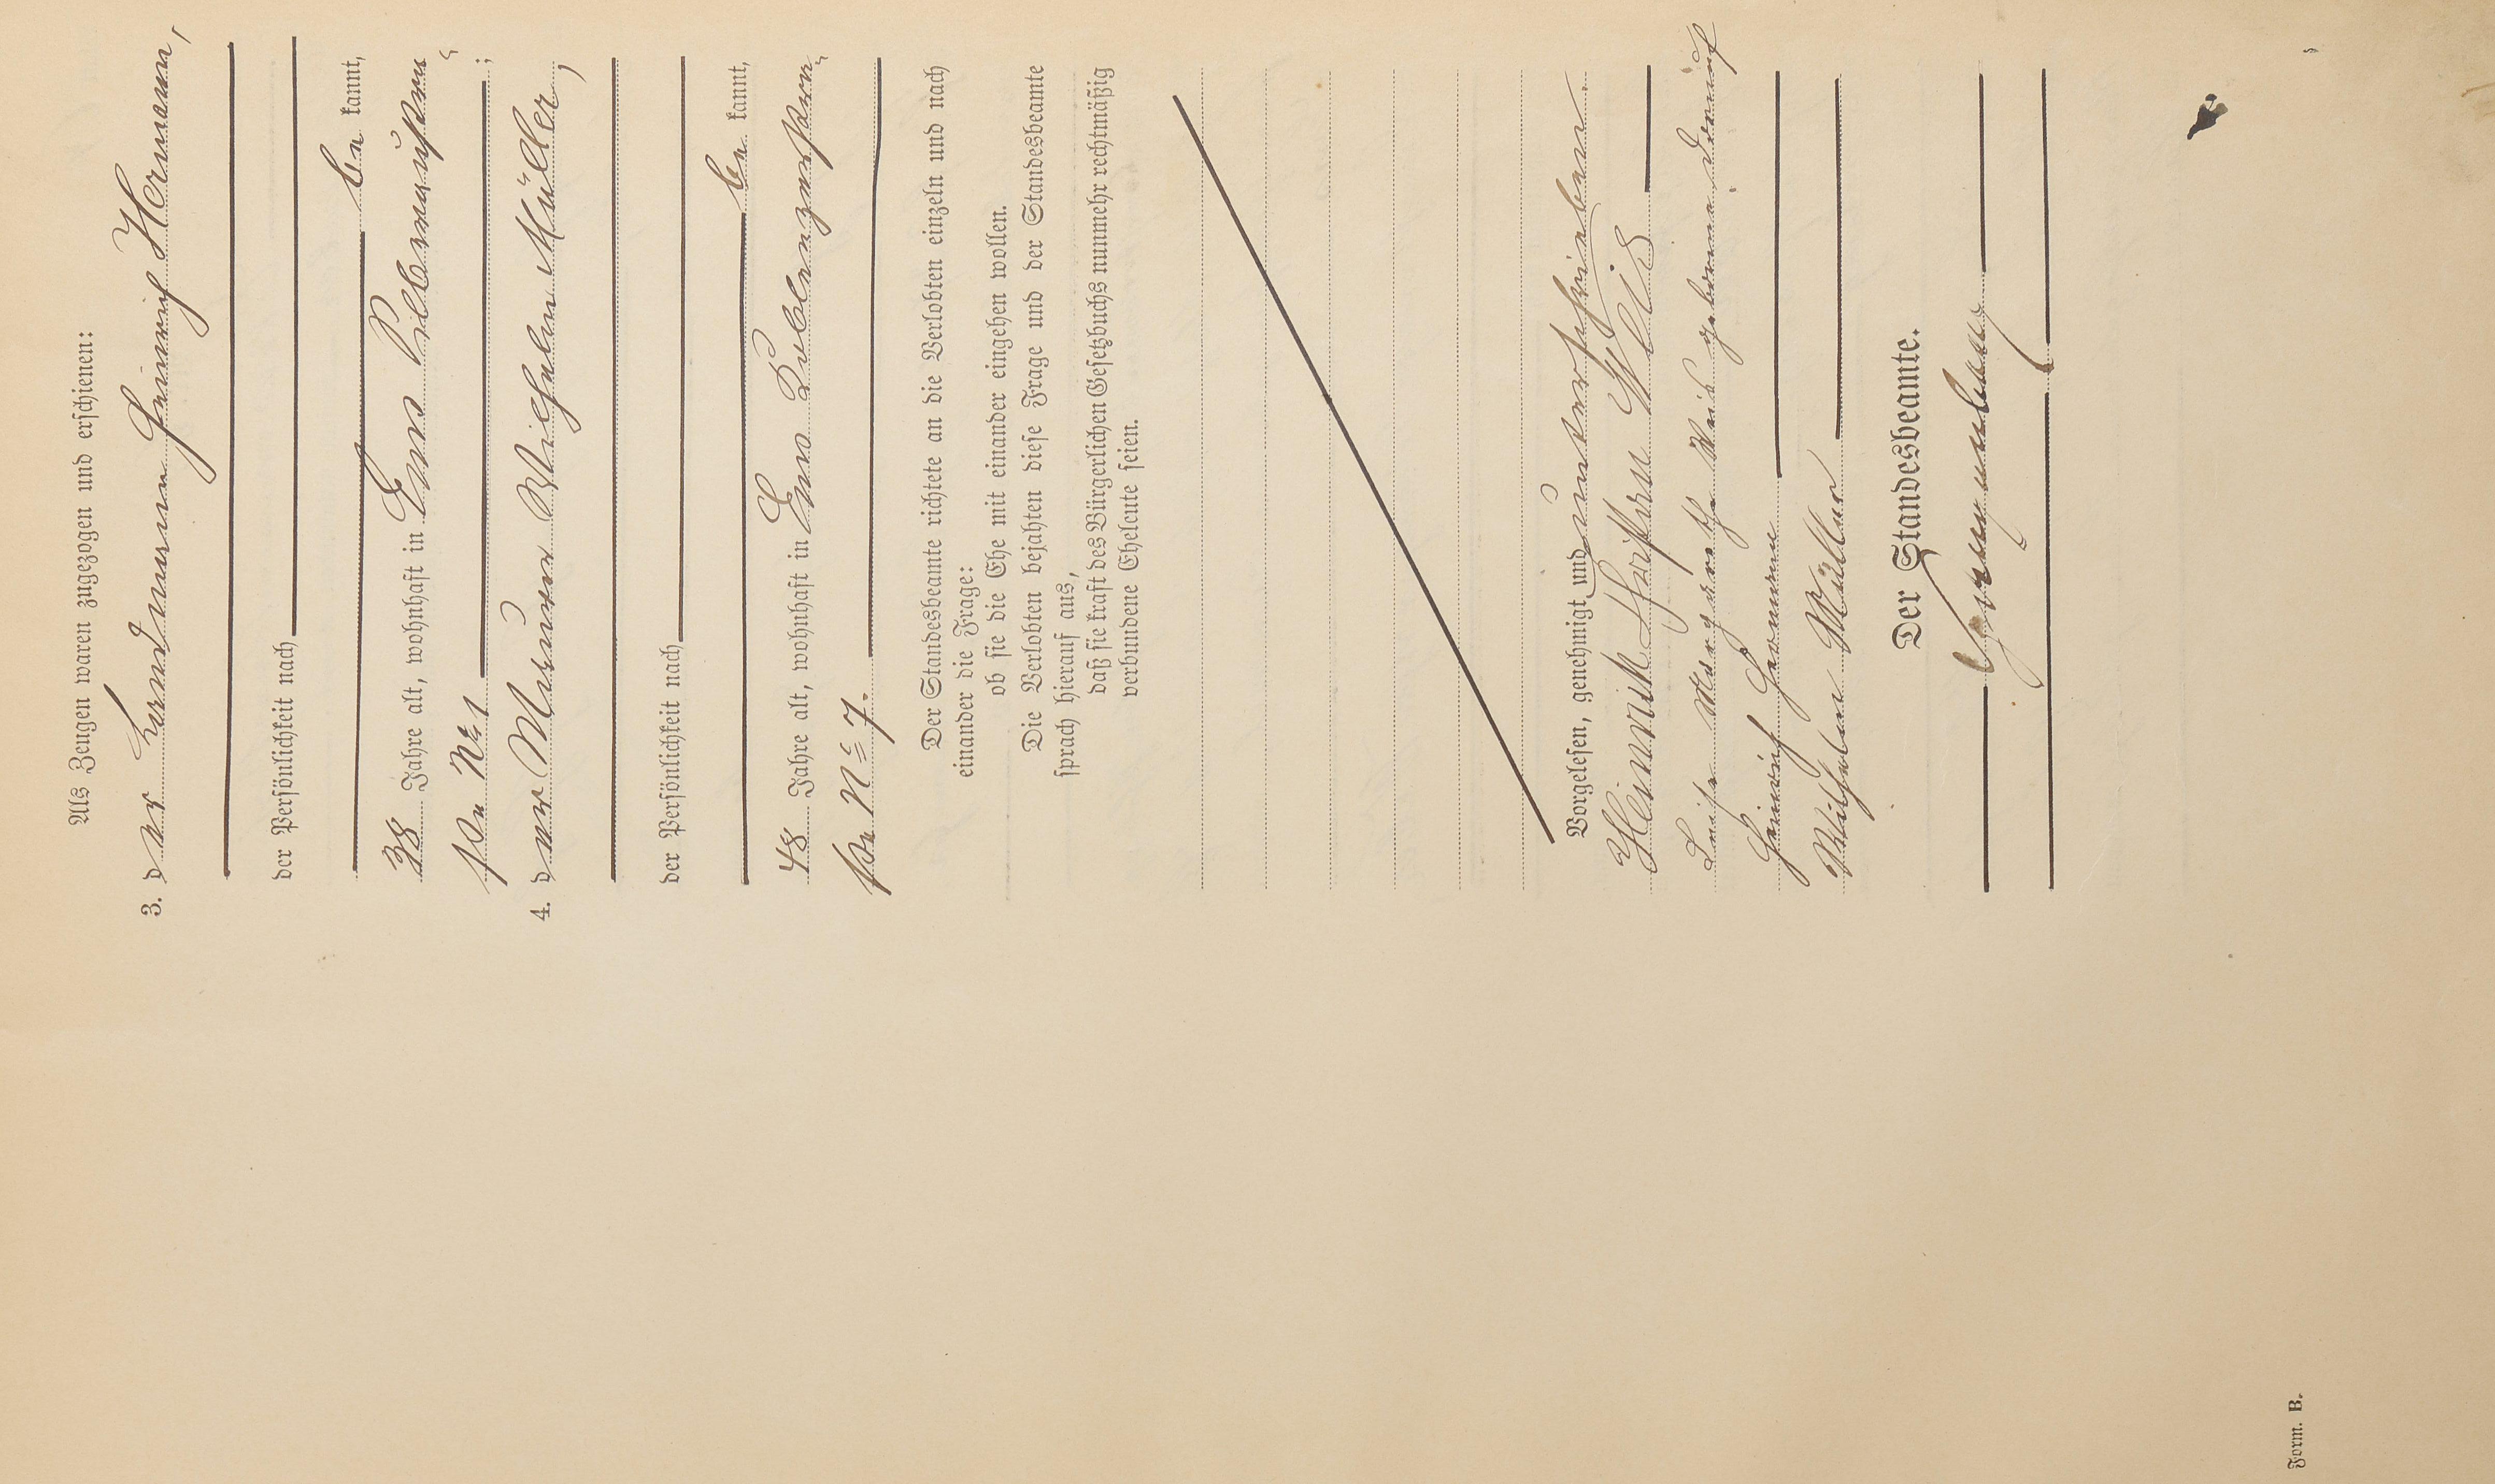 Als Zeugen waren zugezogen und erschienen:
3. der Landmann Heinrich Hermann,
der Persönlichkeit nach
be kannt,
38 Jahre alt, wohnhaft in Ems Silberaustra
ße No 1 ;
4. der Maurer Wilhelm Müller,
der Persönlichkeit nach
be kannt,
48 Jahre alt, wohnhaft in Ems Coblenzerstra
ße No 7.
Der Standesbeamte richtete an die Verlobten einzeln und nach
einander die Frage:
ob sie die Ehe mit einander eingehen wollen.
Die Verlobten bejahten diese Frage und der Standesbeamte
sprach hierauf aus,
daß sie kraft des Bürgerlichen Gesetzbuchs nunmehr rechtmäßig
verbundene Eheleute seien.
Vorgelesen, genehmigt und unterschrieben
Heinrich Christian Weis
Luise Margarethe Weis geborene
Heinrich Hermann
Wilhelm Müller
Der Standesbeamte.
Form. B.